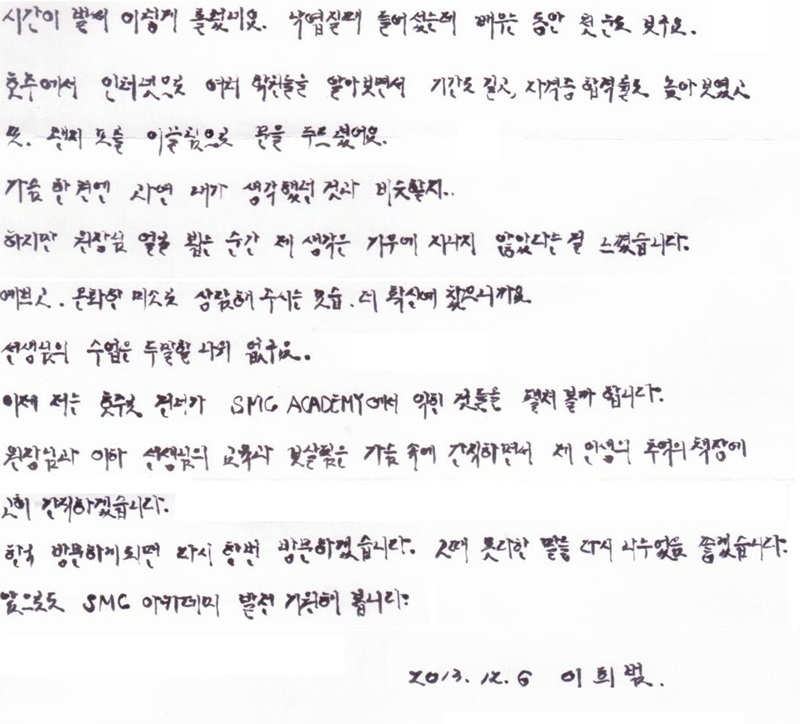 시간이 벌써 이렇게 흘렀네요. 낙엽질때 들어섰는데 배우는 동안 첫눈도 보구요.
호주에서 인터넷으로 여러 학원들을 알아보면서 기간도 길고, 자격증 합격율도 높아 보였고
또. 왠지 모를 이끌림으로 문을 두드렸어요.
가슴 한 켠엔 과연 내가 생각했던 것과 비슷할지..
하지만 원장님 얼굴 뵙는 순간 제 생각은 기우에 지나지 않았다는 걸 느꼈습니다.
예쁘고. 온화한 미소로 상담해 주시는 모습. 더 확신에 찼으니까요.
선생님의 수업은 두말할 나위 없구요.
이제 저는 호주로 건너가 SMC ACADEMY에서 익힌 것들을 펼쳐 볼까 합니다.
원장님과 이하 선생님의 교육과 보살핌은 가슴 속에 간직하면서 제 인생의 추억의 책장에
고히 간직하겠습니다.
한국 방문하게되면 다시 한번 방문하겠습니다. 그때 못다한 말들 다시 나누었음 좋겠습니다.
앞으로도 SMC 아카데미 발전 기원해 봅니다.
2013. 12. 6 이 희 범.